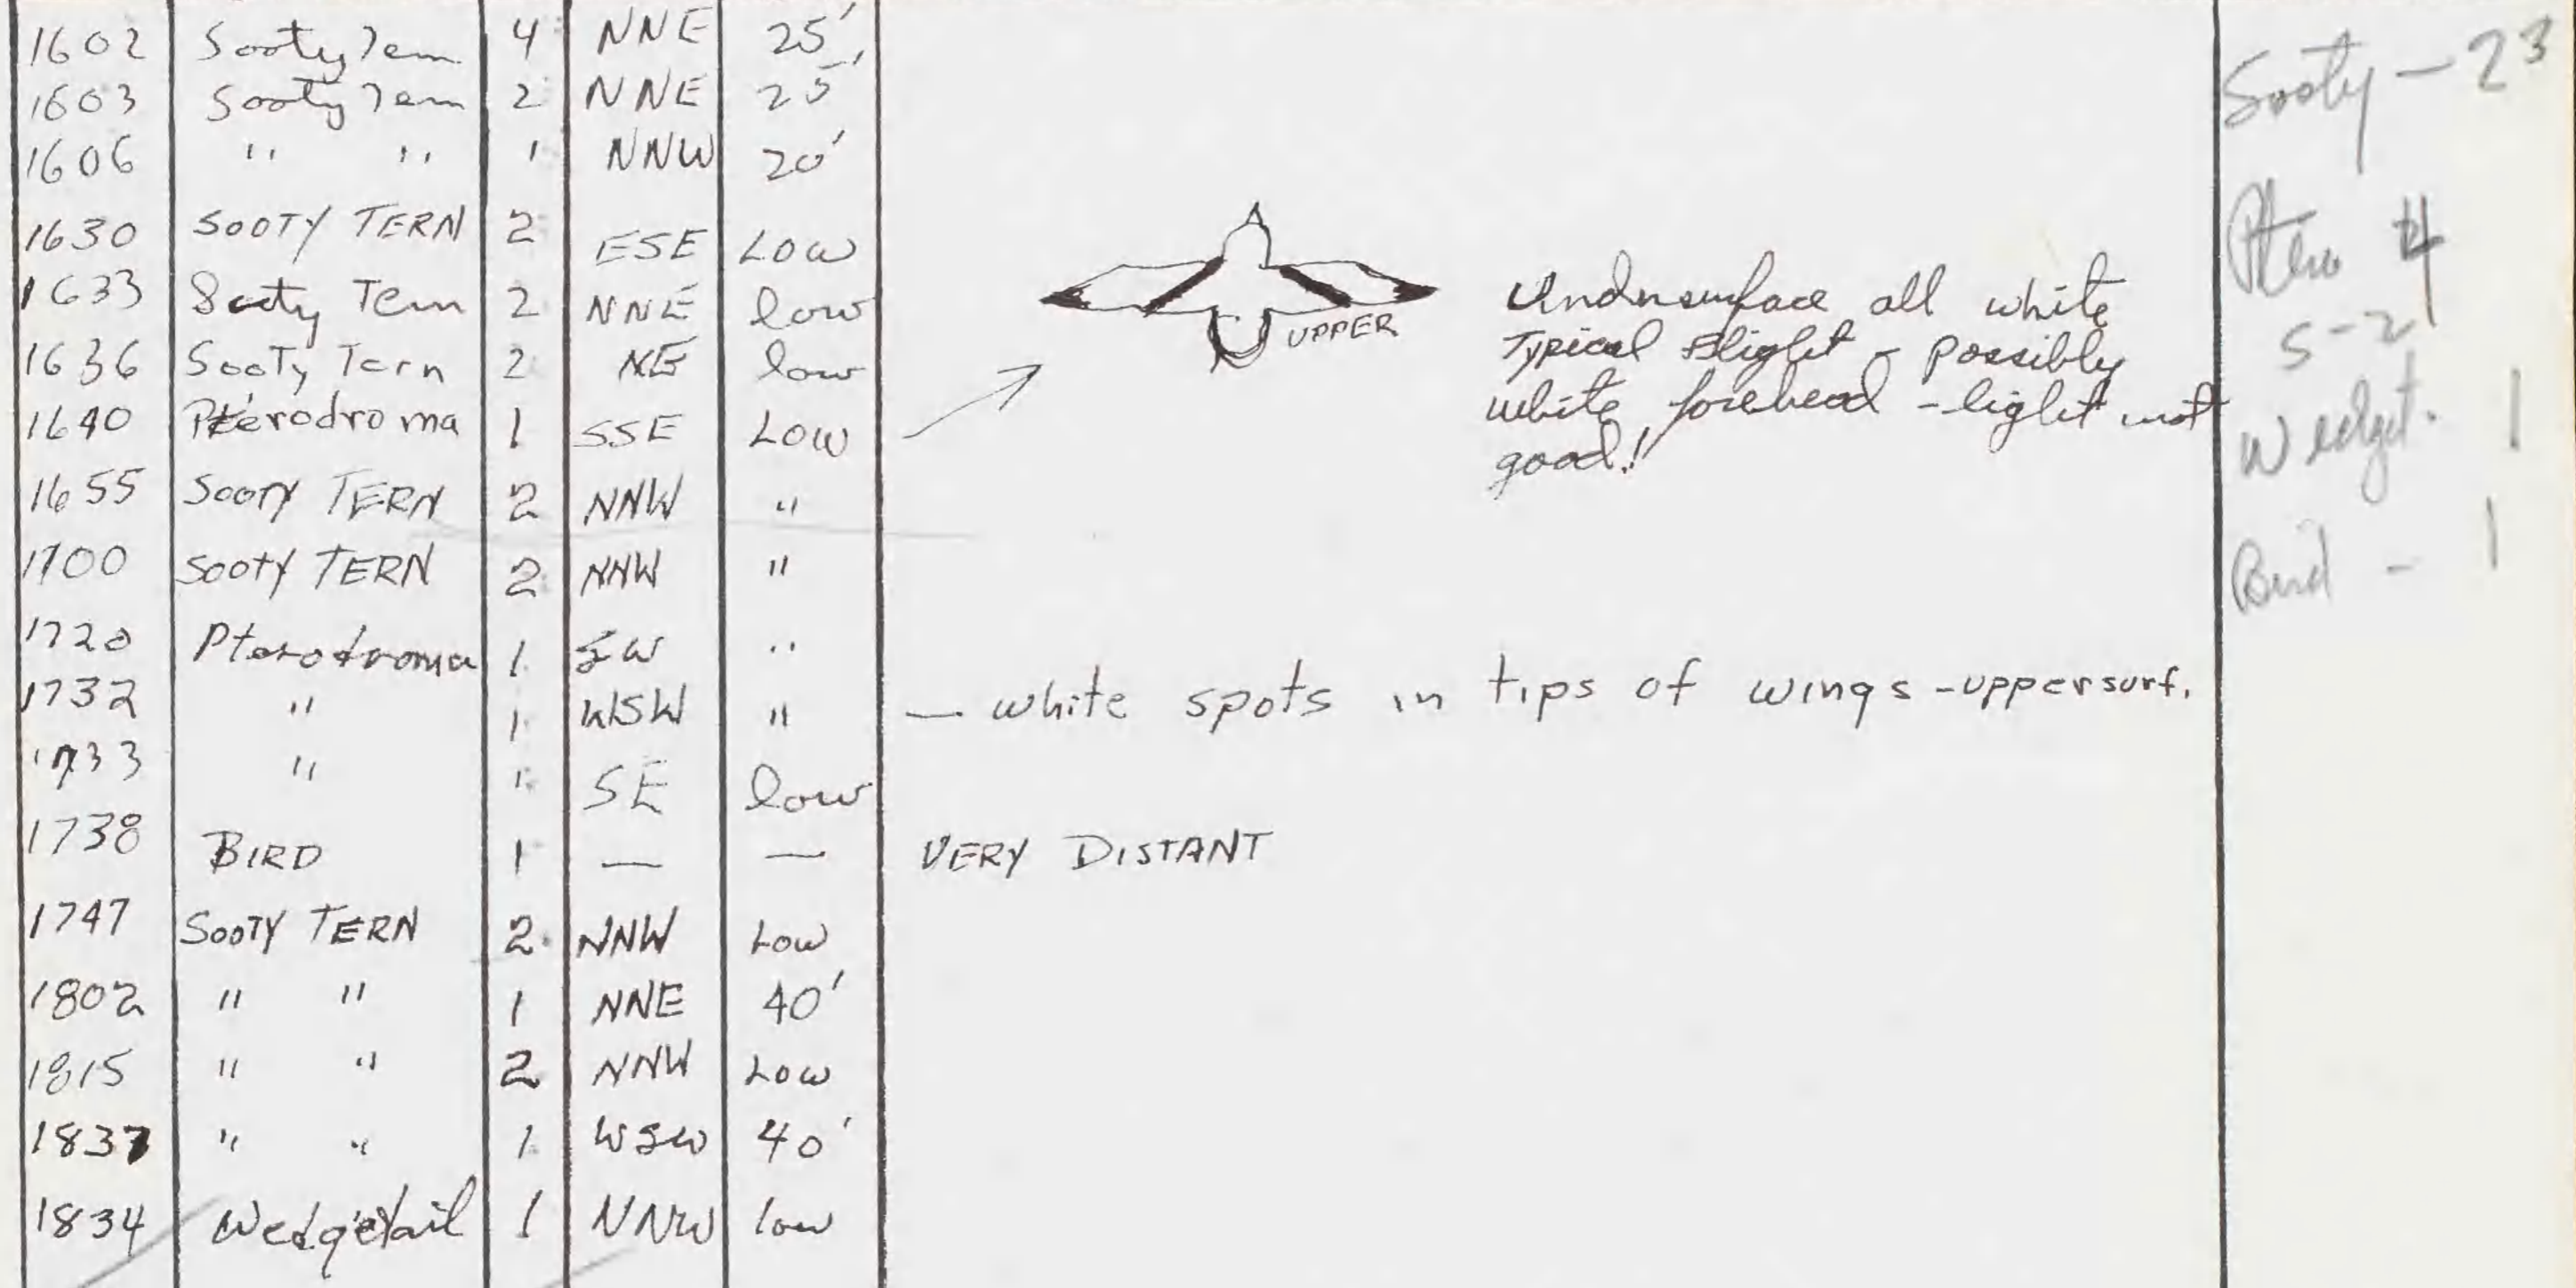 1602 Sooty Tern 4 NNE 25' Sooty - 23
1603 Sooty Tern 2 NNE 25'
1606 " " 1 NNW 20'
1630 SOOTY TERN 2 ESE LOW Ptero 4
1633 Sooty Tern 2 NNE low UPPER Undersurface all white S-2
1636 Sooty Tern 2 NE low Typical flight - possibly
1640 Pterodroma 1 SSE LOW white forehead - light not Wedget. 1
good!
1655 SOOTY TERN 2 NNW "
1700 SOOTY TERN 2 NNW " Bird - 1
1720 Pterodroma 1 SW "
1732 " 1 WSW " — white spots in tips of wings - uppersurf.
1733 " 1 SE low
1738 BIRD 1 — — VERY DISTANT
1747 SOOTY TERN 2 NNW LOW
1802 " " 1 NNE 40'
1815 " " 2 NNW LOW
1837 " " 1 WSW 40'
1834 Wedgetail 1 NNW low